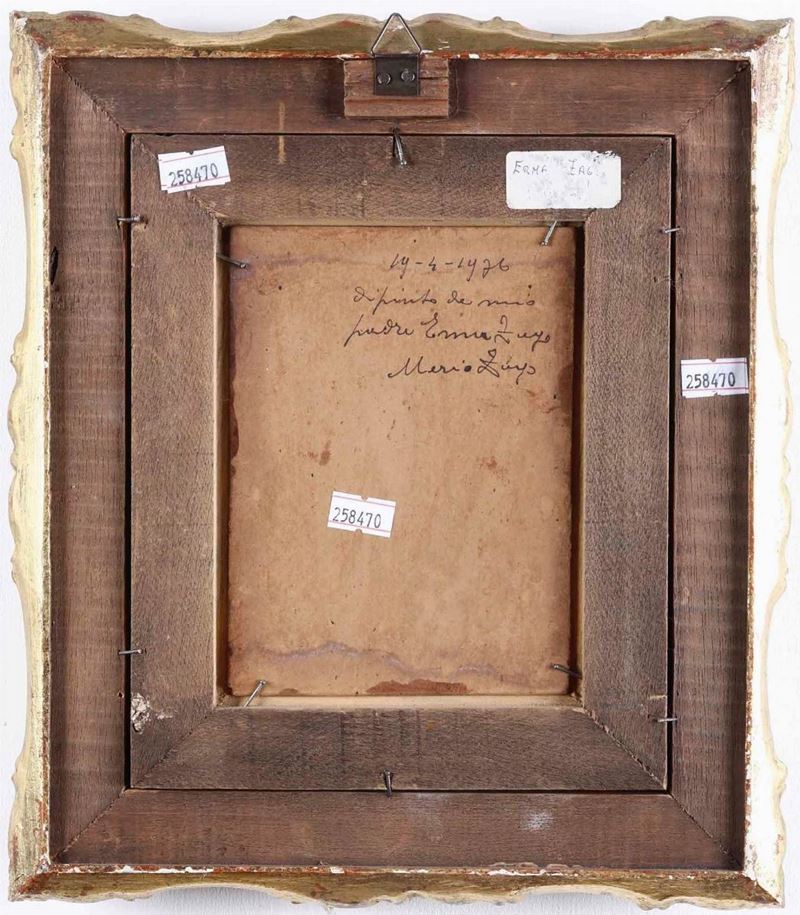 258470
ERMA ZAG
19-4-1976
dipinto de mio
padre Erma Zago
Mario Zago
258470
258470